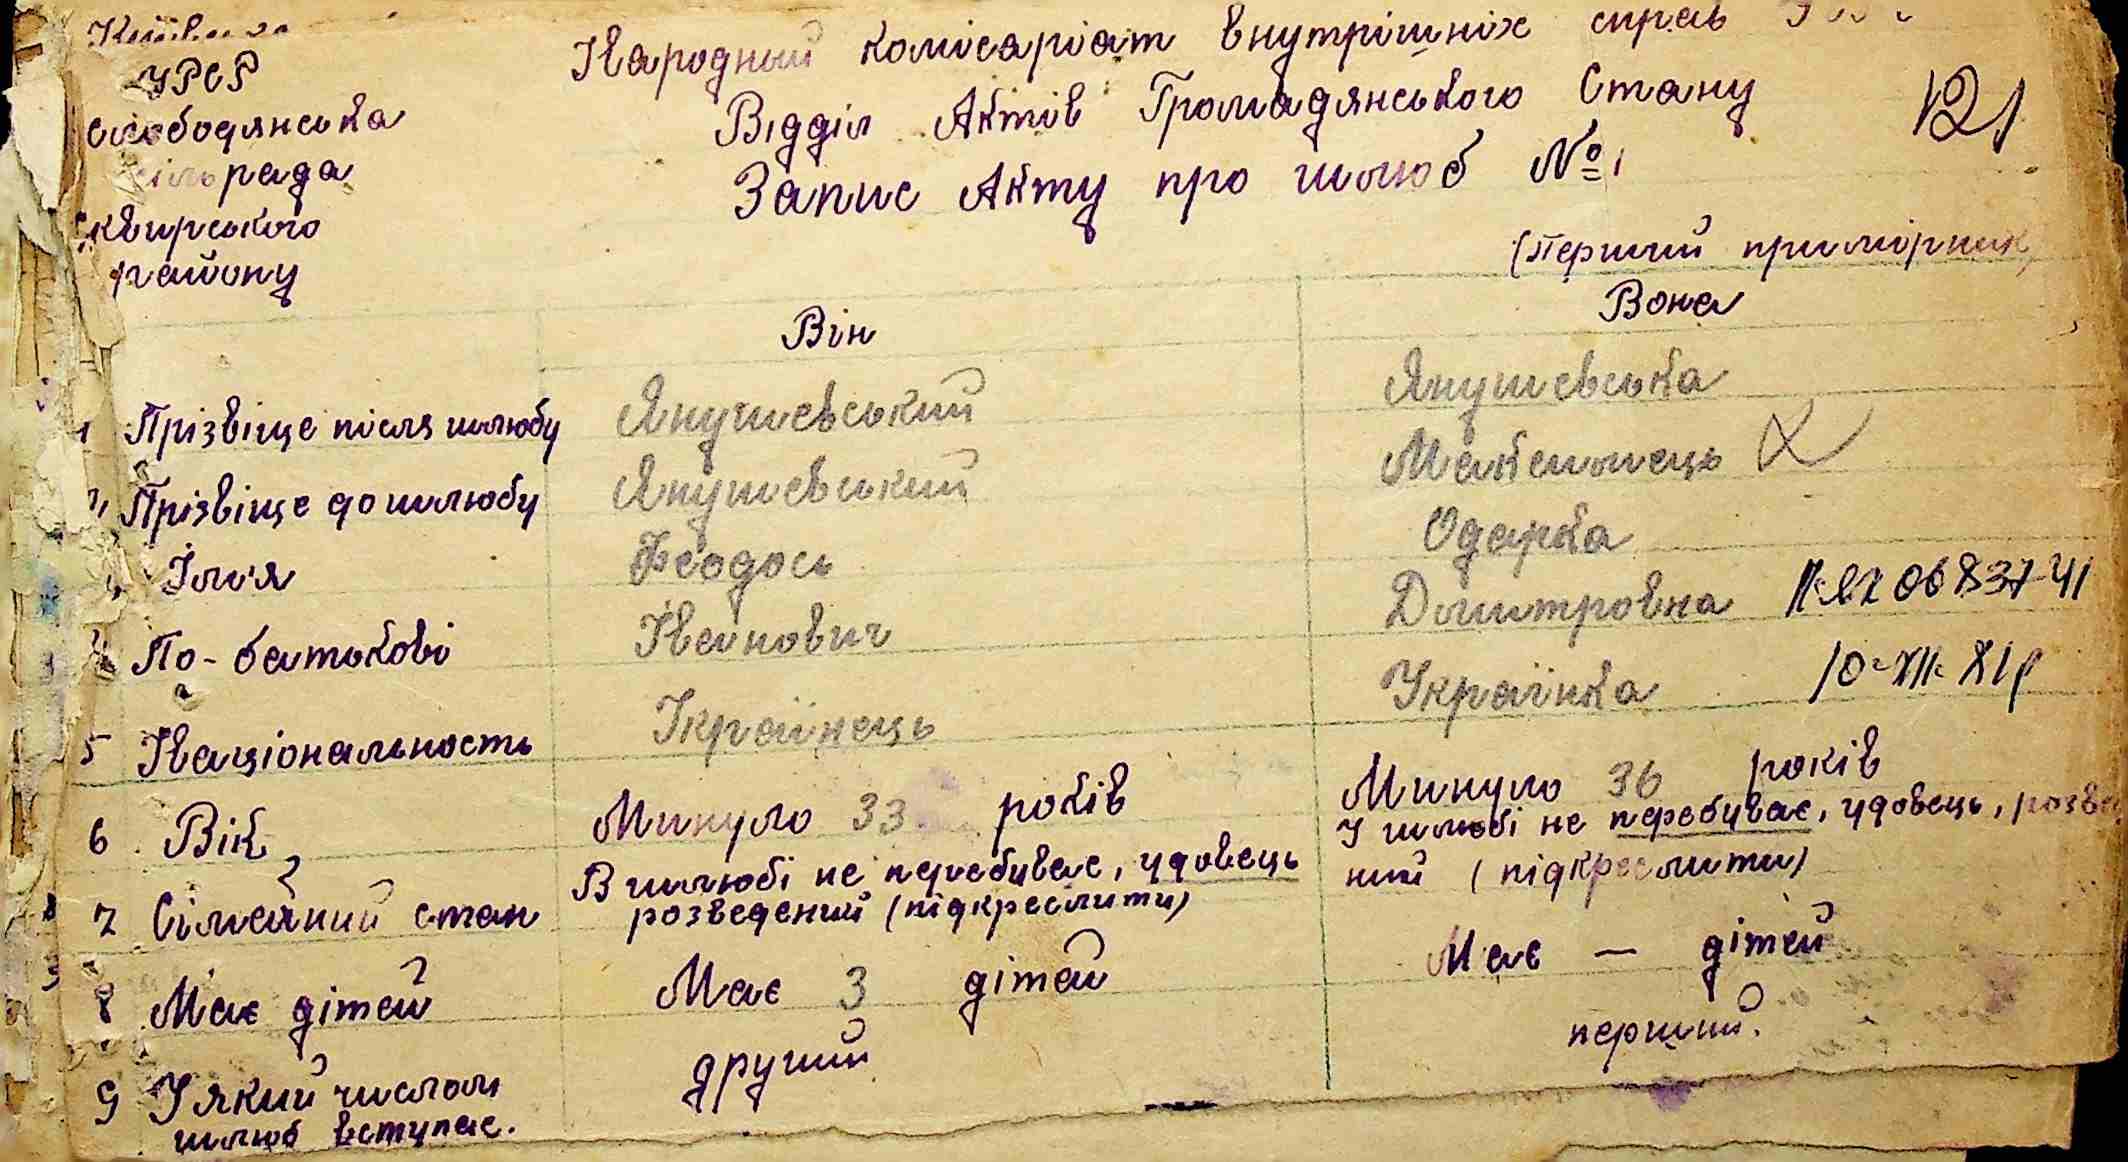 УРСР
Слободянська
сільрада
Сквирського
району
Народний комісаріат внутрішніх справ
Відділ Актів Громадянського Стану
Запис Акту про шлюб № 1
121
(Перший примірник)
Він
Вона
1 Прізвіще після шлюбу Янушевський Янушевська
2 Прізвіще до шлюбу Янушевський
3 Ім'я Феодось Одарка
4 По-батькові Іванович Дмитровна
10-XII-81р
5 Національность Українець Українка
6 Вік Минуло 33 років Минуло 36 років
7 Сімейний стан В шлюбі не перебуває, удовець
розведений (підкреслити)
У шлюбі не перебуває, удовець, розведе
ний (підкреслити)
8 Має дітей Має 3 дітей Має — дітей
9 У який числом
шлюб вступає.
другий
перший.